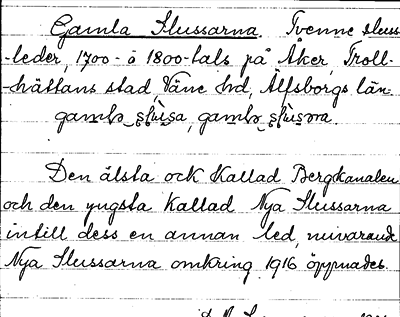 Gamla Slussarna. Tvenne sluss-
-leder, 1700- o 1800-tals på Åker, Troll-
-hättans stad Väne hd, Älfsborgs län.
Den älsta ock kallad Bergkanalen
och den yngsta kallad Nya Slussarna
intill dess en annan led, nuvarande
Nya Slussarna omkring 1916 öppnades.